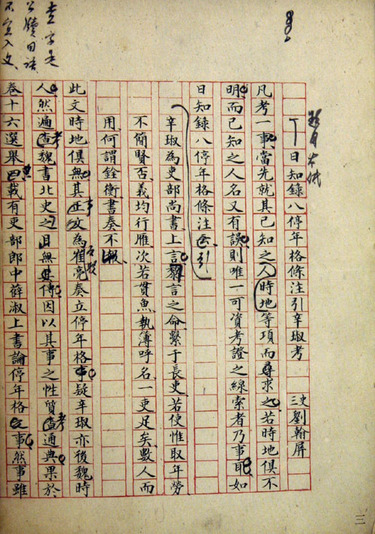 日知錄八停年格條注引辛琡考
史三 劉翰屏
凡考一事當先就其已知之人時地等項而尋求之若時地俱不
明而已知之人名又有誤則唯一可資考證之線索者乃事耳如
日知錄八停年格條注引
辛琡為吏部尚書上言黎言之命繫于長吏若使惟取年勞
不簡賢否義均行雁次若貫魚執簿呼名一吏足矣數人而
用何謂銓衡書奏不報
此文時地俱無其正文為崔亮奏立停年格事疑辛琡亦後魏時
人然遍查魏書北史之目無其傳因以其事之性質查通典果於
卷十六選舉四載有吏部郎中薛淑上書論停年格之事然事雖
查字是
公牘用語
不宜入文
三